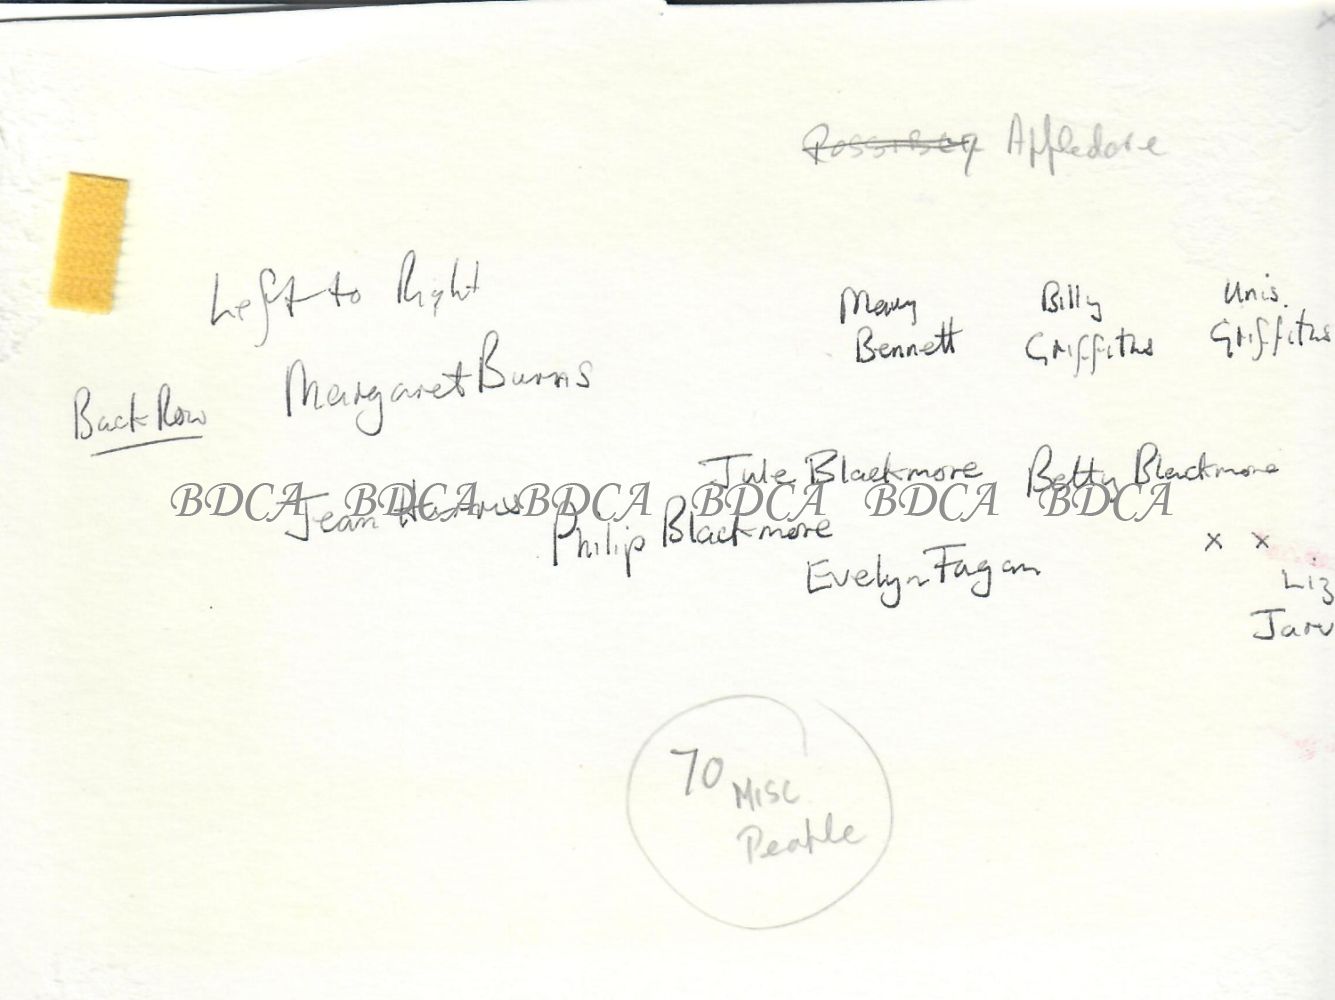 Appledore
Left to Right
Mary Bennett
Billy Griffiths
Unis. Griffiths
Back Row
Margaret Burns
Jule Blackmore
Betty Blackmore
Jean
Philip Blackmore
BDCA BDCA BDCA BDCA BDCA BDCA
x x
Evelyn Fagan
Liz
Jarv
70
Misc
People